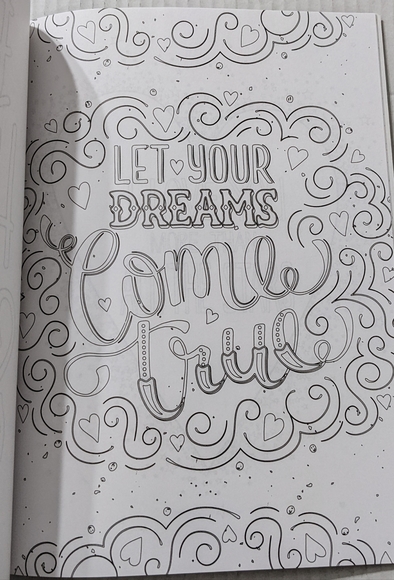 LET YOUR
DREAMS
Come
true